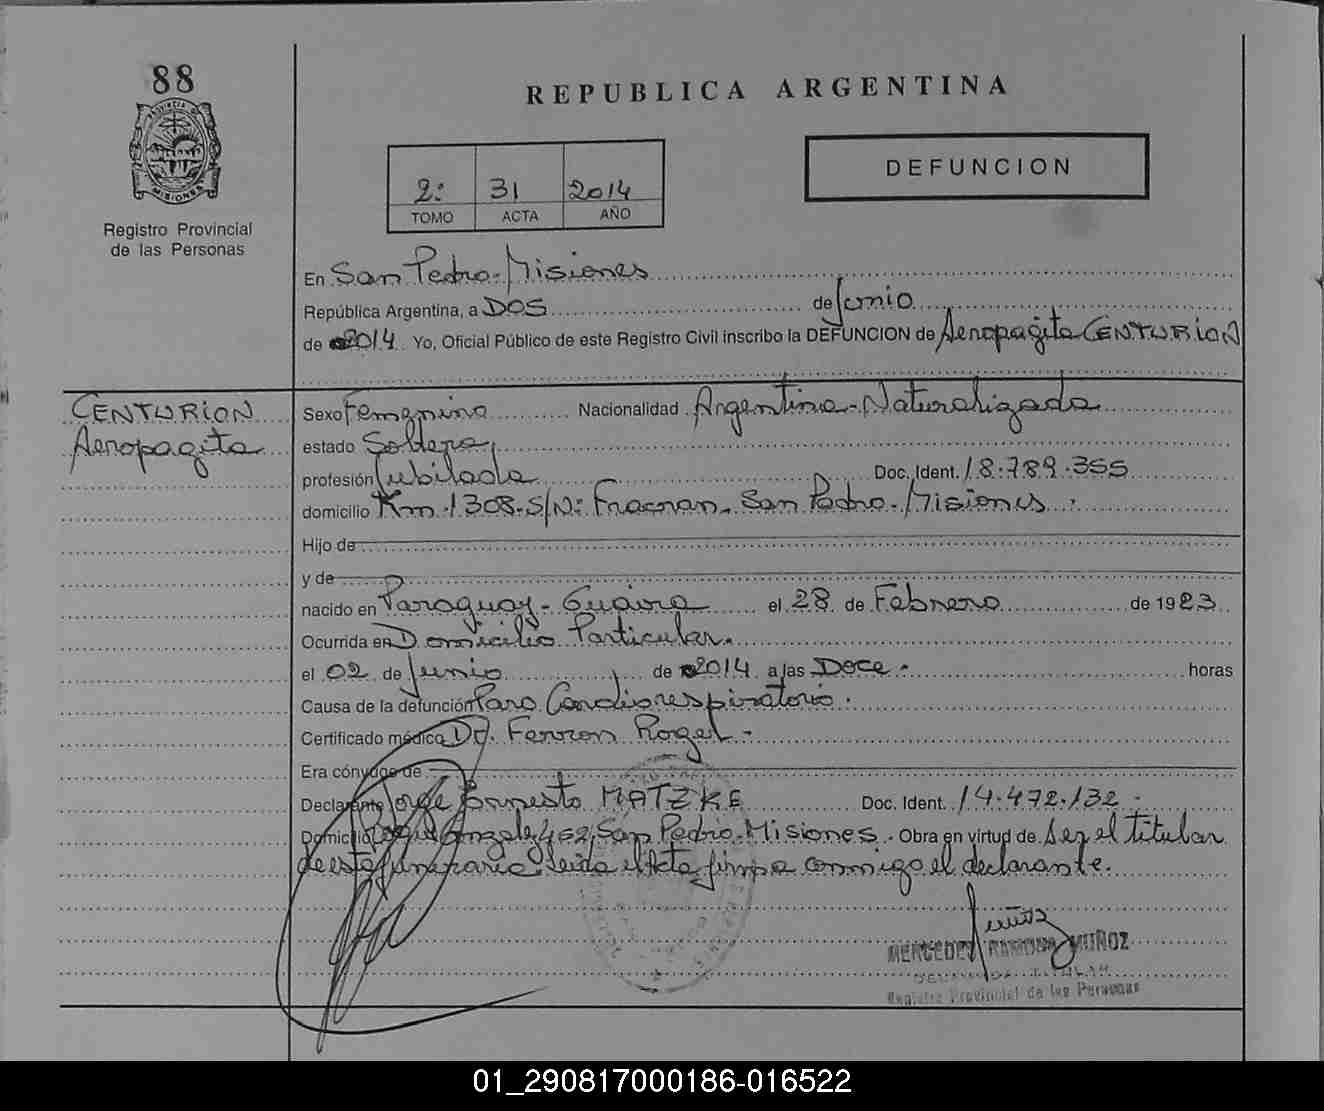 88
PROVINCIA DE
MISIONES
Registro Provincial
de las Personas
REPUBLICA ARGENTINA
2: 31 2014
TOMO ACTA AÑO
DEFUNCION
En San Pedro - Misiones
República Argentina, a DOS de Junio
de 2014 Yo, Oficial Público de este Registro Civil inscribo la DEFUNCION de Aeropagita CENTURION
CENTURION
Aeropagita
Sexo Femenino Nacionalidad Argentina - Naturalizada
estado Soltera
profesión Jubilada Doc. Ident. 18.789.355
domicilio Km. 1308 - S/N: Fracran - San Pedro - Misiones.
Hijo de
y de
nacido en Paraguay - Guaira el 28 de Febrero de 1923
Ocurrida en Domicilio Particular.
el 02 de Junio de 2014 a las Doce - horas
Causa de la defunción Paro Cardiorespiratorio.
Certificado médico Dr. Ferron Roger -
Era cónyuge de
Declarante Jorge Ernesto MATZKE Doc. Ident. 14.472.132 -
Domicilio 452, San Pedro - Misiones. Obra en virtud de Ser el titular
de esta funeraria. Leida el Acta firma conmigo el declarante.
MERCEDES RAMONA MUÑOZ
TITULAR
Registro Provincial de las Personas
01_290817000186-016522